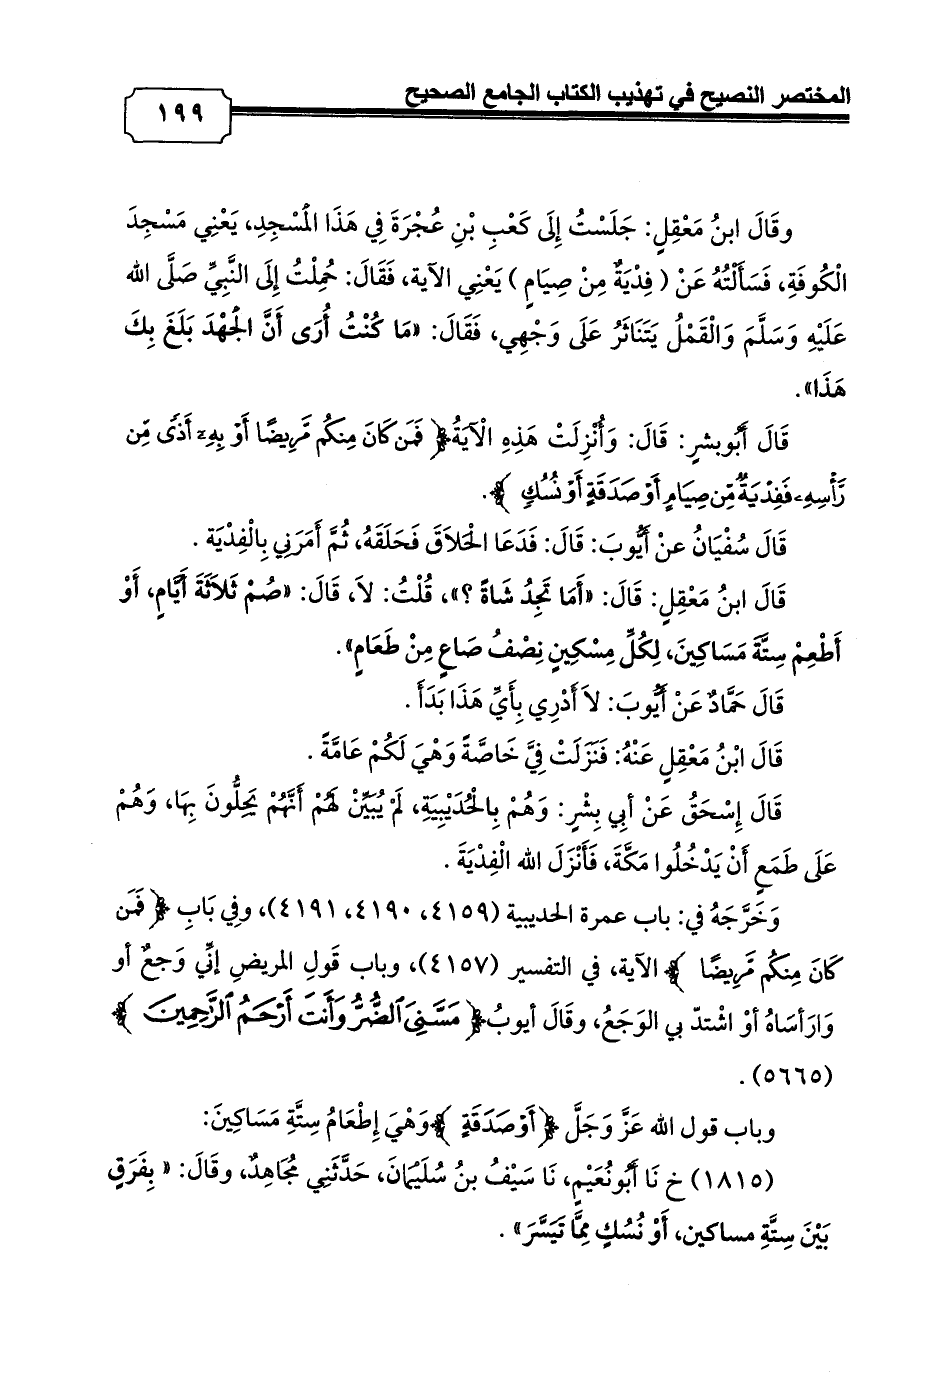 المختصر النصيح في تهذيب الكتاب الجامع الصحيح
١٩٩
وقَالَ ابنُ مَعْقِلٍ: جَلَسْتُ إِلَى كَعْبِ بْنِ عُجْرَةَ فِي هَذَا الْمَسْجِدِ، يَعْنِي مَسْجِدَ
الْكُوفَةِ، فَسَأَلْتُهُ عَنْ ( فِدْيَةٌ مِنْ صِيَامٍ ) يَعْنِي الآية، فَقَالَ: حُمِلْتُ إِلَى النَّبِيِّ صَلَّى الله
عَلَيْهِ وَسَلَّمَ وَالْقَمْلُ يَتَنَاثَرُ عَلَى وَجْهِي، فَقَالَ: «مَا كُنْتُ أُرَى أَنَّ الْجَهْدَ بَلَغَ بِكَ
هَذَا».
قَالَ أَبُوبشرٍ: قَالَ: وَأُنْزِلَتْ هَذِهِ الْآيَةُ﴿ فَمَن كَانَ مِنكُم مَّرِيضًا أَوْ بِهِۦٓ أَذًى مِّن
رَّأْسِهِۦ فَفِدْيَةٌ مِّن صِيَامٍ أَوْ صَدَقَةٍ أَوْ نُسُكٍ ﴾.
قَالَ سُفْيَانُ عنْ أَيُّوبَ: قَالَ: فَدَعَا الْحَلاَقَ فَحَلَقَهُ، ثُمَّ أَمَرَنِي بِالْفِدْيَة .
قَالَ ابنُ مَعْقِلٍ: قَالَ: «أَمَا تَجِدُ شَاةً ؟»، قُلْتُ: لاَ، قَالَ: «صُمْ ثَلاَثَةَ أَيَّامٍ، أَوْ
أَطْعِمْ سِتَّةَ مَسَاكِينَ، لِكُلِّ مِسْكِينٍ نِصْفُ صَاعٍ مِنْ طَعَامٍ».
قَالَ حَمَّادٌ عَنْ أَيُّوبَ: لاَ أَدْرِي بِأَيِّ هَذَا بَدَأَ .
قَالَ ابْنُ مَعْقِلٍ عَنْهُ: فَنَزَلَتْ فِيَّ خَاصَّةً وَهْيَ لَكُمْ عَامَّةً .
قَالَ إِسْحَقُ عَنْ أبي بِشْرٍ: وَهُمْ بِالْحُدَيْبِيَةِ، لَمْ يُبَيِّنْ لَهُمْ أَنَّهُمْ يَحِلُّونَ بِهَا، وَهُمْ
عَلَى طَمَعٍ أَنْ يَدْخُلُوا مَكَّةَ، فَأَنْزَلَ الله الْفِدْيَةَ .
وَخَرَّجَهُ في: باب عمرة الحديبية (٤١٥٩، ٤١٩٠، ٤١٩١)، وفِي بَابِ ﴿ فَمَن
كَانَ مِنكُم مَّرِيضًا ﴾ الآية، في التفسير (٤١٥٧)، وباب قَولِ المريضِ إنِّي وَجعٌ أو
وَارَأسَاهُ أوْ اشْتدّ بي الوَجَعُ، وقَالَ أيوبُ﴿ مَسَّنِىَ ٱلضُّرُّ وَأَنتَ أَرْحَمُ ٱلرَّٰحِمِينَ ﴾
(٥٦٦٥) .
وباب قول الله عَزَّ وَجَلَّ ﴿ أَوْ صَدَقَةٍ ﴾وَهْيَ إِطْعَامُ سِتَّةِ مَسَاكِينَ:
(١٨١٥) خ نَا أَبُونُعَيْمٍ، نَا سَيْفُ بنُ سُلَيْمَانَ، حَدَّثَنِي مُجَاهِدٌ، وقَالَ: « بِفَرَقٍ
بَيْنَ سِتَّةِ مساكين، أَوْ نُسُكٍ مِمَّا تَيَسَّرَ» .